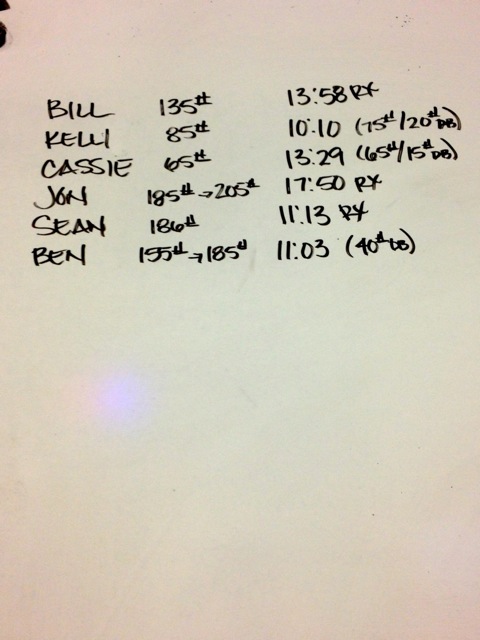 BILL 135# 13:58 RX
KELLI 85# 10:10 (75#/20# DB)
CASSIE 65# 13:29 (65#/15# DB)
JON 185# → 205# 17:50 RX
SEAN 186# 11:13 RX
BEN 155# → 185# 11:03 (40# DB)